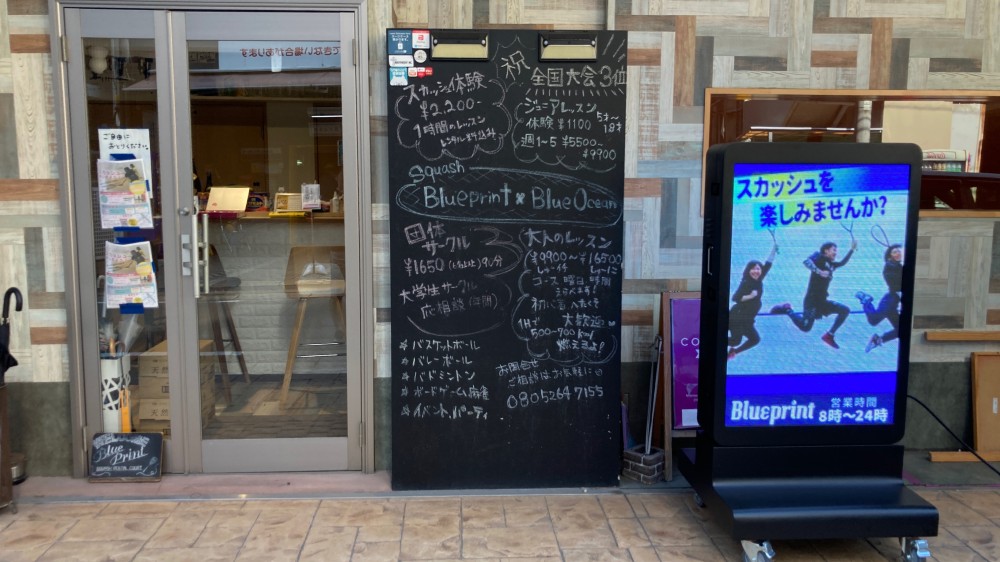 ご自由に
おとりください。
できない場合があります
Blue
Print
スカッシュ体験
¥2,200-
1時間のレッスン
レンタル料込み
祝
全国大会3位
ジュニアレッスン
体験 ¥1100
5才〜
18才
週1~5 ¥5500-
¥9900
Squash
Blueprint × BlueOcean
団体
サークル
¥1650
90分
大学生サークル
応相談
大人のレッスン
¥9900〜¥16500
コース 曜日 時間
大歓迎
1Hで
500-700kcal
燃えるよ!
バスケットボール
バレーボール
バドミントン
ボードゲーム麻雀
イベント、パーティ
お問合せ
ご相談はお気軽に
08052647155
CO
スカッシュを
楽しみませんか?
Blueprint
営業時間
8時〜24時